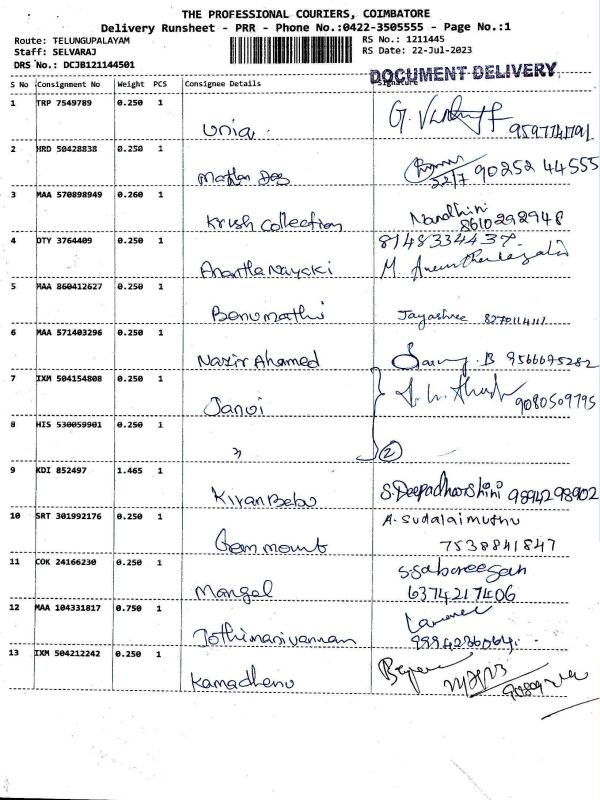 THE PROFESSIONAL COURIERS, COIMBATORE
Delivery Runsheet - PRR - Phone No.:0422-3505555 - Page No.:1
Route: TELUNGUPALAYAM
RS No.: 1211445
Staff: SELVARAJ
RS Date: 22-Jul-2023
DRS No.: DCJB121144501
DOCUMENT DELIVERY
S No Consignment No Weight PCS Consignee Details Signature
1 TRP 7549789 0.250 1
2 HRD 50428838 0.250 1
22/7 90252 44555
3 MAA 570898949 0.260 1
Krish Collection Nandhini
8610292948
4 OTY 3764409 0.250 1
Anantha Nayaki
5 MAA 860412627 0.250 1
Banumathi Jayashree
6 MAA 571403296 0.250 1
Nazir Ahamed B 9566695282
7 IXM 504154808 0.250 1
9080509795
8 HIS 530059901 0.250 1
2
9 KDI 852497 1.465 1
Kiran Babu S.Deepadharshini 9894298902
10 SRT 301992176 0.250 1
A. Sudalaimuthu
7538841847
11 COK 24166230 0.250 1
S.Sabareesan
Mangal 6374217406
12 MAA 104331817 0.750 1
Jothimanivannan
13 IXM 504212242 0.250 1
Kamadhenu